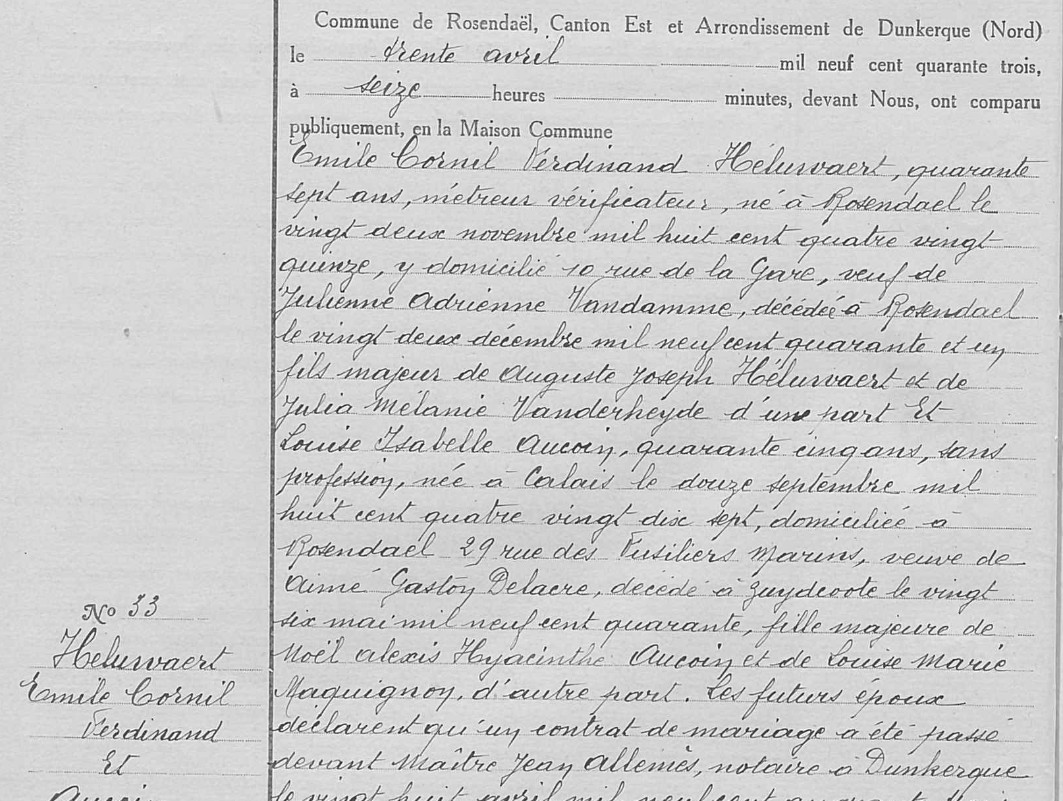 Commune de Rosendaël, Canton Est et Arrondissement de Dunkerque (Nord)
le trente avril mil neuf cent quarante trois,
à seize heures minutes, devant Nous, ont comparu
publiquement, en la Maison Commune
Emile Cornil Ferdinand Héluwaert, quarante
sept ans, métreur vérificateur, né à Rosendael le
vingt deux novembre mil huit cent quatre vingt
quinze, y domicilié 10 rue de la Gare, veuf de
Julienne Adrienne Vandamme, décédée à Rosendael
le vingt deux décembre mil neuf cent quarante et un
fils majeur de Auguste Joseph Héluwaert et de
Julia Mélanie Vanderheyde d'une part Et
Louise Isabelle Aucoin, quarante cinq ans, sans
profession, née à Calais le douze septembre mil
huit cent quatre vingt dix sept, domiciliée à
Rosendael 29 rue des Fusiliers Marins, veuve de
Aimé Gaston Delacre, décédé à Zuydcoote le vingt
six mai mil neuf cent quarante, fille majeure de
Noël Alexis Hyacinthe Aucoin et de Louise Marie
Maquignon, d'autre part. Les futurs époux
déclarent qu'un contrat de mariage a été passé
devant Maître Jean Allemès, notaire à Dunkerque
le vingt huit avril mil neuf cent quarante trois
No 33
Héluwaert
Emile Cornil
Ferdinand
Et
Aucoin